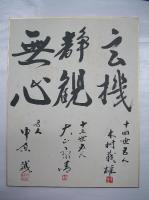 玄機
十四世名人
木村義雄
静観
十五世名人
大山康晴
無心
名人
中原誠